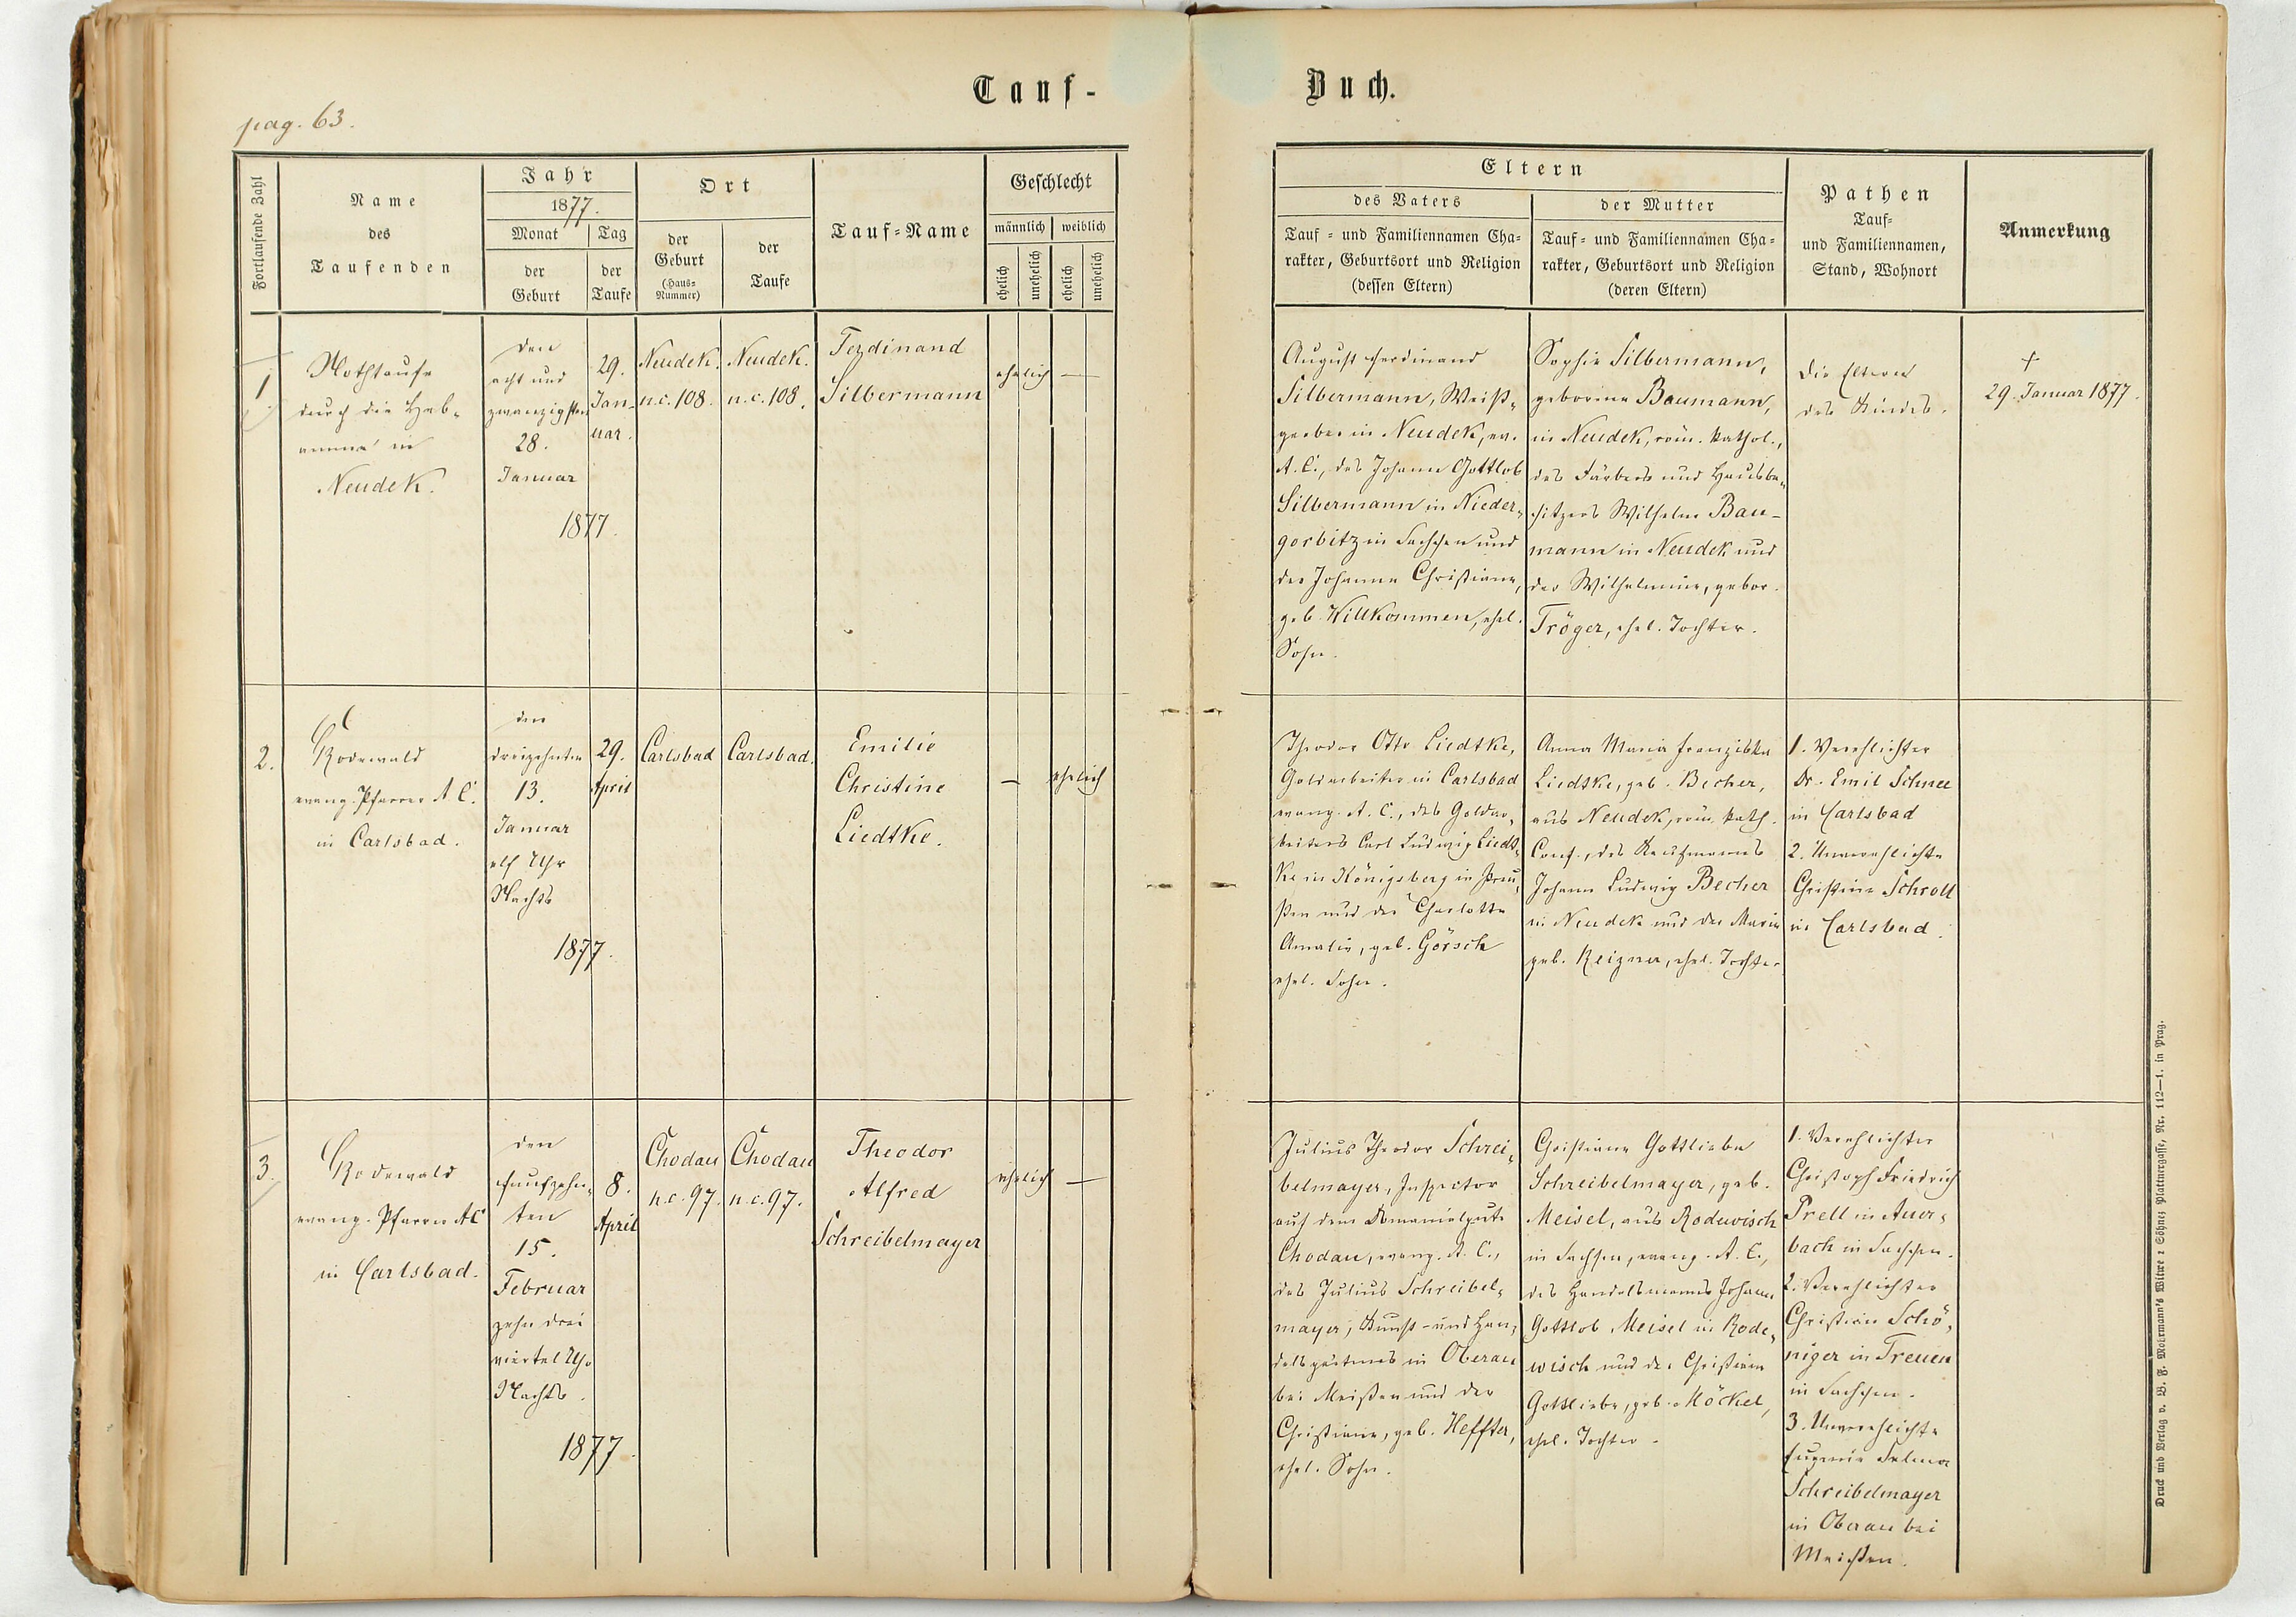 Tauf-
Buch.
pag. 63.
Fortlaufende Zahl
Name
des
Taufenden
Jahr
1877.
Monat
der
Geburt
Tag
der
Taufe
Ort
der
Geburt
(Haus-
Nummer)
der
Taufe
Tauf-Name
Geschlecht
männlich
weiblich
ehelich
unehelich
ehelich
unehelich
Eltern
des Vaters
Tauf- und Familiennamen Cha-
rakter, Geburtsort und Religion
(dessen Eltern)
der Mutter
Tauf- und Familiennamen Cha-
rakter, Geburtsort und Religion
(deren Eltern)
Pathen
Tauf-
und Familiennamen,
Stand, Wohnort
Anmerkung
1.
Nothtaufe
durch die Heb-
amme in
Neudek.
den
acht und
zwanzigsten
28.
Januar
1877.
29.
Jan-
uar.
Neudek.
n.c. 108.
Neudek.
n.c. 108.
Ferdinand
Silbermann
ehelich
—
August Ferdinand
Silbermann, Weiß-
gerber in Neudek, ev.
A.C., des Johann Gottlob
Silbermann in Nieder-
gorbitz in Sachsen und
der Johanne Christiane,
geb. Willkommen, ehel.
Sohn.
Sophie Silbermann,
geborene Baumann,
in Neudek, röm. kathol.,
des Färbers und Hausbe-
sitzers Wilhelm Bau-
mann in Neudek und
der Wilhelmine, gebor.
Tröger, ehel. Tochter.
Die Eltern
des Kindes.
†
29. Januar 1877.
2.
Rodewald
evang. Pfarrer A.C.
in Carlsbad.
den
dreizehnten
13.
Januar
elf Uhr
Nachts
1877.
29.
April
Carlsbad
Carlsbad.
Emilie
Christine
Liedtke.
—
ehelich
Theodor Otto Liedtke,
Goldarbeiter in Carlsbad
evang. A.C., des Goldar-
beiters Carl Ludwig Liedt-
ke in Königsberg in Preu-
ßen und der Charlotte
Amalie, geb. Görsch
ehel. Sohn.
Anna Maria Franziska
Liedtke, geb. Becher,
aus Neudek, röm. kath.
Conf., des Kaufmanns
Johann Ludwig Becher
in Neudek und der Maria
geb. Reizner, ehel. Tochter
1. Verehlichter
Dr. Emil Schnee
in Carlsbad
2. Unverehlichte
Christine Schroll
in Carlsbad.
3.
Rodewald
evang. Pfarrer A.C.
in Carlsbad.
den
funfzehn-
ten
15.
Februar
zehn drei
viertel Uhr
Nachts.
1877.
8.
April
Chodau
n.c. 97.
Chodau
n.c. 97.
Theodor
Alfred
Schreibelmayer
ehelich
—
Julius Theodor Schrei-
belmayer, Inspector
auf dem Domanialgute
Chodau, evang. A.C.,
des Julius Schreibel-
mayer, Kunst- und Han-
delsgärtners in Oberau
bei Meißen und der
Christiane, geb. Heffter,
ehel. Sohn.
Christiane Gottliebe
Schreibelmayer, geb.
Meisel, aus Rodewisch
in Sachsen, evang. A.C.,
des Handelsmanns Johann
Gottlob Meisel in Rode-
wisch und der Christiane
Gottliebe, geb. Möckel,
ehel. Tochter.
1. Verehlichter
Christoph Friedrich
Prell in Auer-
bach in Sachsen.
2. Verehlichter
Christian Schö-
niger in Treuen
in Sachsen.
3. Unverehlichte
Eugenie Selma
Schreibelmayer
in Oberau bei
Meißen.
Druck und Verlag v. B. F. Mohrmann's Witwe & Söhne, Plattnergasse, Nr. 112—1. in Prag.